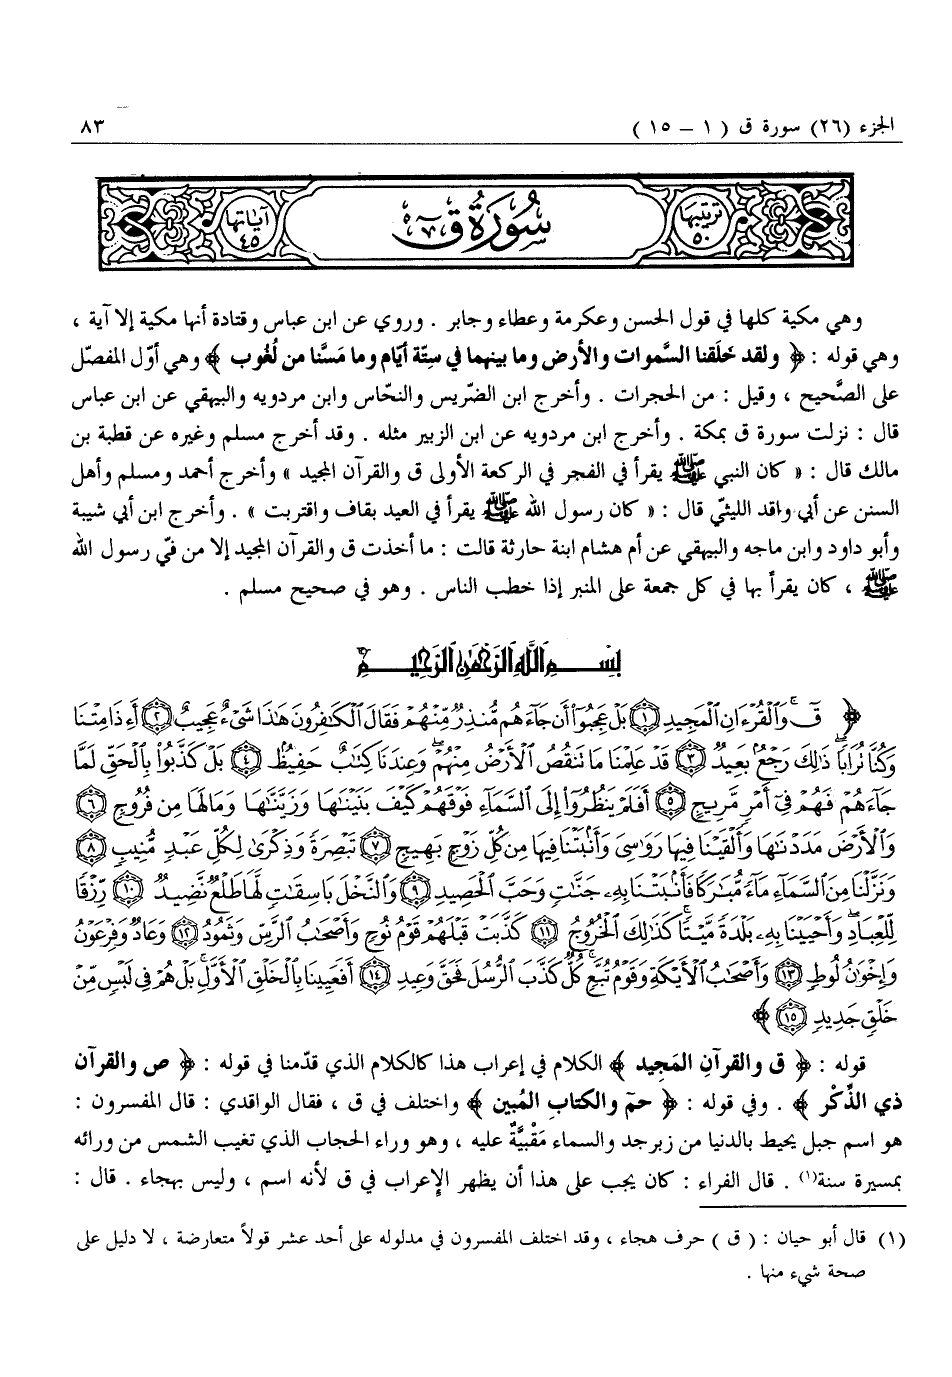 الجزء (٢٦) سورة ق ( ١ – ١٥ )
٨٣
ترتيبها ٥٠
سُورَةُ قٓ
آياتها ٤٥
وهي مكية كلها في قول الحسن وعكرمة وعطاء وجابر . وروي عن ابن عباس وقتادة أنها مكية إلا آية ،
وهي قوله : ﴿ ولقد خلَقنا السَّموات والأرض وما بينهما في ستِّة أيّام وما مَسَّنا من لُغوب ﴾ وهي أوّل المفصّل
على الصَّحيح ، وقيل : من الحجرات . وأخرج ابن الضّريس والنحّاس وابن مردويه والبيهقي عن ابن عباس
قال : نزلت سورة ق بمكة . وأخرج ابن مردويه عن ابن الزبير مثله . وقد أخرج مسلم وغيره عن قطبة بن
مالك قال : « كان النبي ﷺ يقرأ في الفجر في الركعة الأولى ق والقرآن المجيد » وأخرج أحمد ومسلم وأهل
السنن عن أبي واقد الليثيّ قال : « كان رسول الله ﷺ يقرأ في العيد بقاف واقتربت » . وأخرج ابن أبي شيبة
وأبو داود وابن ماجه والبيهقي عن أم هشام ابنة حارثة قالت : ما أخذت ق والقرآن المجيد إلا من فيّ رسول الله
ﷺ ، كان يقرأ بها في كل جمعة على المنبر إذا خطب الناس . وهو في صحيح مسلم .
بِسْمِ ٱللَّهِ ٱلرَّحْمَٰنِ ٱلرَّحِيمِ
﴿ قٓ ۚ وَٱلْقُرْءَانِ ٱلْمَجِيدِ ١ بَلْ عَجِبُوٓا۟ أَن جَآءَهُم مُّنذِرٌ مِّنْهُمْ فَقَالَ ٱلْكَٰفِرُونَ هَٰذَا شَىْءٌ عَجِيبٌ ٢ أَءِذَا مِتْنَا
وَكُنَّا تُرَابًا ۖ ذَٰلِكَ رَجْعٌۢ بَعِيدٌ ٣ قَدْ عَلِمْنَا مَا تَنقُصُ ٱلْأَرْضُ مِنْهُمْ ۖ وَعِندَنَا كِتَٰبٌ حَفِيظٌۢ ٤ بَلْ كَذَّبُوا۟ بِٱلْحَقِّ لَمَّا
جَآءَهُمْ فَهُمْ فِىٓ أَمْرٍ مَّرِيجٍ ٥ أَفَلَمْ يَنظُرُوٓا۟ إِلَى ٱلسَّمَآءِ فَوْقَهُمْ كَيْفَ بَنَيْنَٰهَا وَزَيَّنَّٰهَا وَمَا لَهَا مِن فُرُوجٍ ٦
وَٱلْأَرْضَ مَدَدْنَٰهَا وَأَلْقَيْنَا فِيهَا رَوَٰسِىَ وَأَنۢبَتْنَا فِيهَا مِن كُلِّ زَوْجٍۭ بَهِيجٍ ٧ تَبْصِرَةً وَذِكْرَىٰ لِكُلِّ عَبْدٍ مُّنِيبٍ ٨
وَنَزَّلْنَا مِنَ ٱلسَّمَآءِ مَآءً مُّبَٰرَكًا فَأَنۢبَتْنَا بِهِۦ جَنَّٰتٍ وَحَبَّ ٱلْحَصِيدِ ٩ وَٱلنَّخْلَ بَاسِقَٰتٍ لَّهَا طَلْعٌ نَّضِيدٌ ١٠ رِّزْقًا
لِّلْعِبَادِ ۖ وَأَحْيَيْنَا بِهِۦ بَلْدَةً مَّيْتًا ۚ كَذَٰلِكَ ٱلْخُرُوجُ ١١ كَذَّبَتْ قَبْلَهُمْ قَوْمُ نُوحٍ وَأَصْحَٰبُ ٱلرَّسِّ وَثَمُودُ ١٢ وَعَادٌ وَفِرْعَوْنُ
وَإِخْوَٰنُ لُوطٍ ١٣ وَأَصْحَٰبُ ٱلْأَيْكَةِ وَقَوْمُ تُبَّعٍ ۚ كُلٌّ كَذَّبَ ٱلرُّسُلَ فَحَقَّ وَعِيدِ ١٤ أَفَعَيِينَا بِٱلْخَلْقِ ٱلْأَوَّلِ ۚ بَلْ هُمْ فِى لَبْسٍ مِّنْ
خَلْقٍ جَدِيدٍ ١٥ ﴾
قوله : ﴿ ق والقرآنِ المَجِيد ﴾ الكلام في إعراب هذا كالكلام الذي قدّمنا في قوله : ﴿ ص والقرآن
ذي الذِّكْر ﴾ . وفي قوله : ﴿ حمۤ والكتاب المُبين ﴾ واختلف في ق ، فقال الواقدي : قال المفسرون :
هو اسم جبل يحيط بالدنيا من زبرجد والسماء مَقْبيَّةٌ عليه ، وهو وراء الحجاب الذي تغيب الشمس من ورائه
بمسيرة سنة(١) . قال الفراء : كان يجب على هذا أن يظهر الإعراب في ق لأنه اسم ، وليس بهجاء . قال :
(١) قال أبو حيان : ( ق ) حرف هجاء ، وقد اختلف المفسرون في مدلوله على أحد عشر قولاً متعارضة ، لا دليل على
صحة شيء منها .